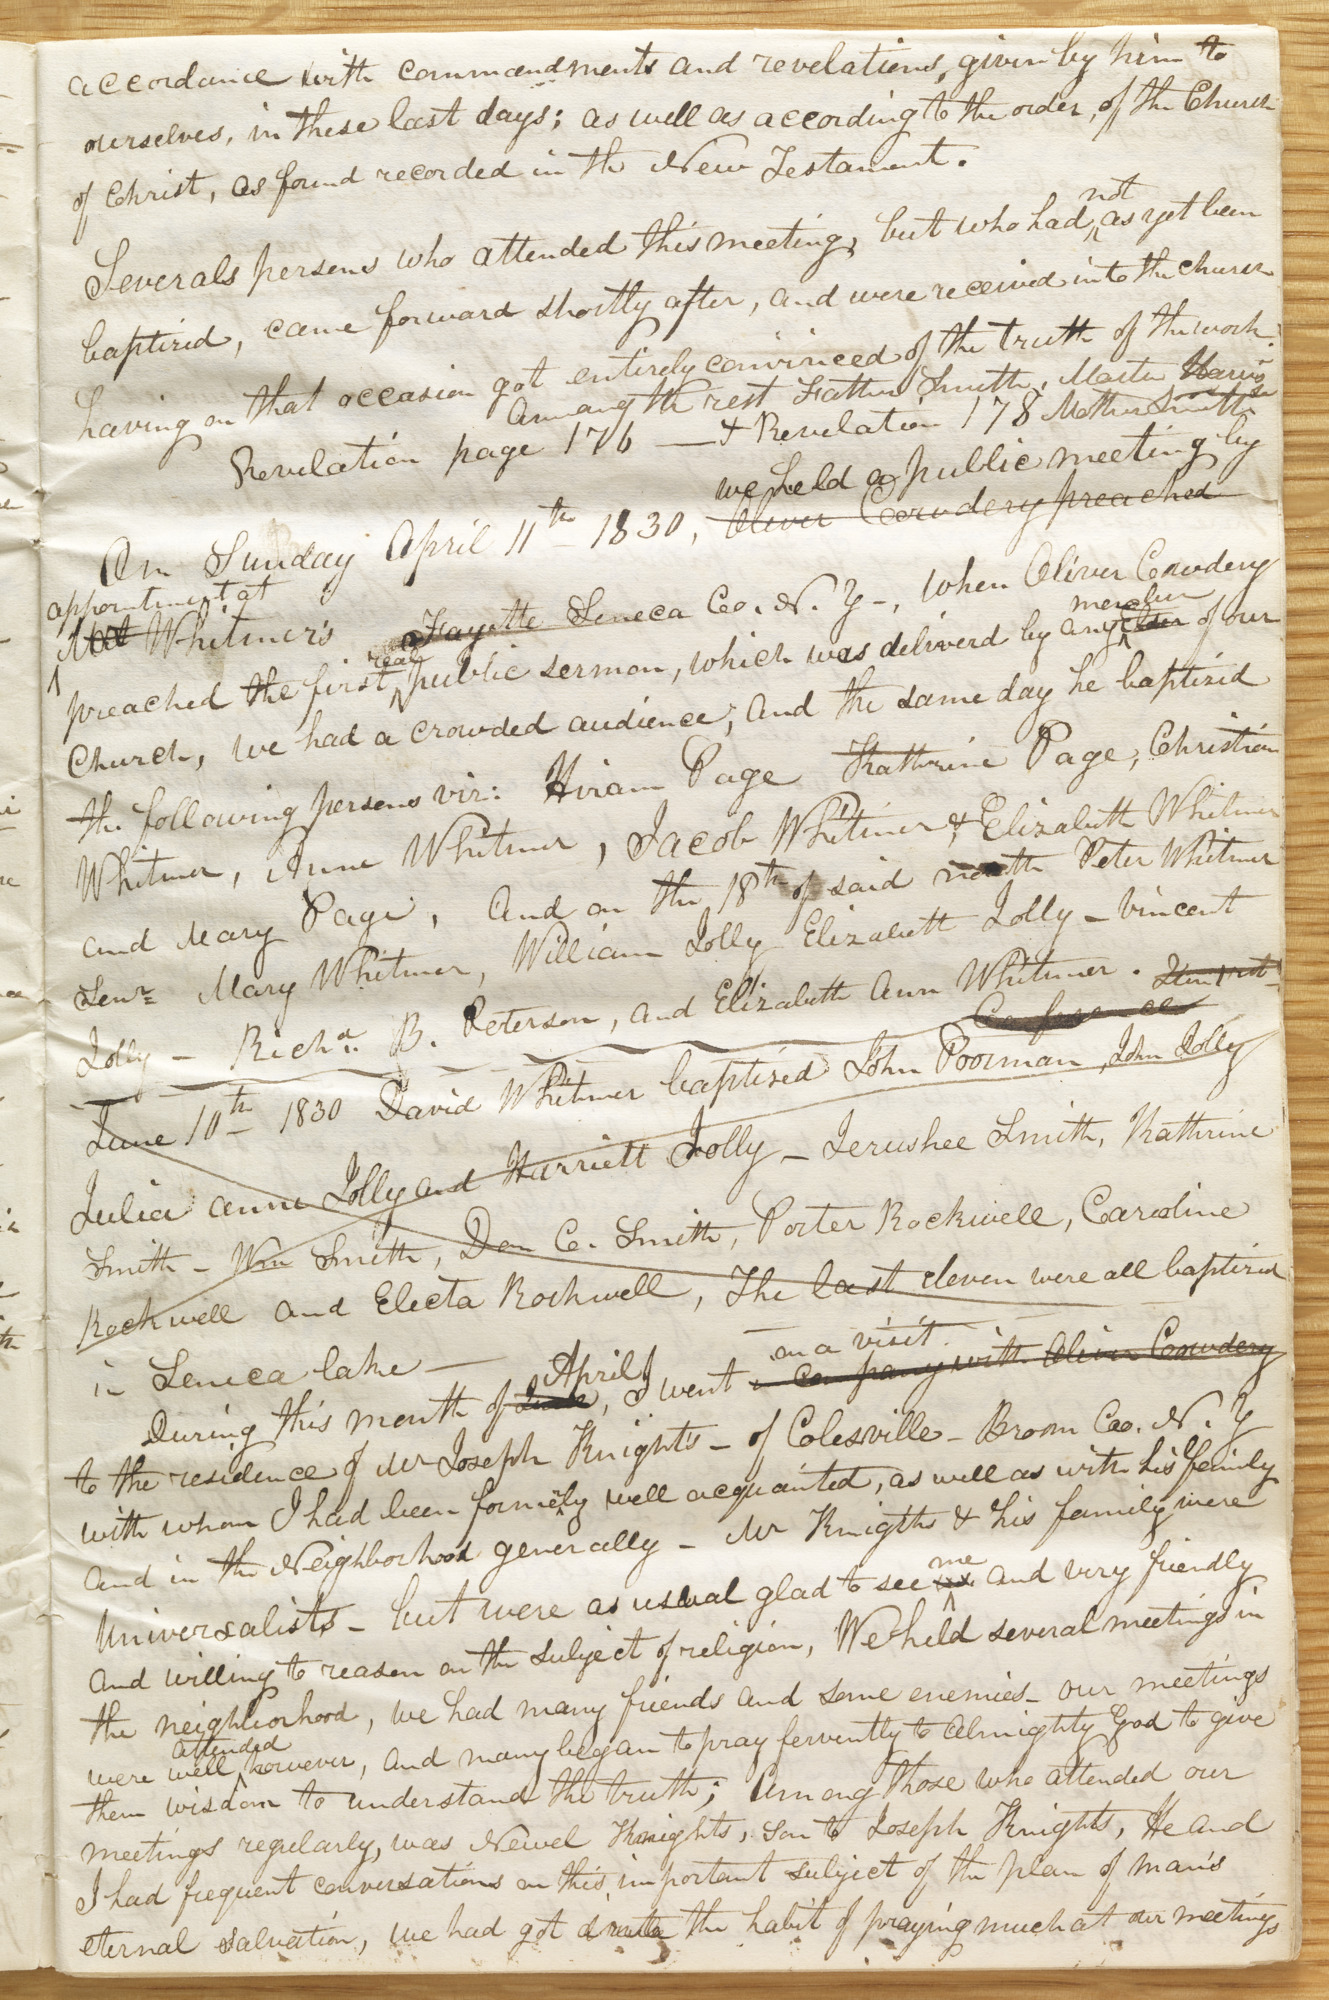 accordance with commandments and revelations, given by him to
ourselves, in these last days; as well as according to the order, of the Church
of Christ, as found recorded in the New Testament.
not
Severals persons who attended this meeting, but who had as yet been
baptized, came forward shortly after, and were received into the church
having on that occasion got entirely convinced of the truth of the work.
Among the rest Father Smith, Martin Harris
Revelation page 176 — & Revelation 178 Mother Smith
we held a public meeting by
On Sunday April 11th 1830, Oliver Cowdery preached
appointment at
Whitmer's Fayette Seneca Co. N. Y—, when Oliver Cowdery
real member
preached the first public sermon, which was deliverd by any elder of our
Church, we had a crowded audience, and the same day he baptized
the following persons viz: Hiram Page Kathrine Page, Christian
Whitmer, Anne Whitmer, Jacob Whitmer, & Elizabeth Whitmer
and Mary Page, And on the 18th of said month Peter Whitmer
Senr Mary Whitmer, William Jolly Elizabeth Jolly — Vincent
Jolly — Richd B. Peterson, and Elizabeth Ann Whitmer.
Conference
June 10th 1830 David Whitmer baptized John Poorman, John Jolly
Julia anne Jolly and Harriett Jolly — Jerushee Smith, Kathrine
Smith — Wm Smith, Don C. Smith, Porter Rockwell, Caroline
Rockwell and Electa Rockwell, The last eleven were all baptized
in Seneca lake —
April on a visit
During this month of June, I went in company with Oliver Cowdery
to the residence of Mr Joseph Knights — of Colesville — Broom Co. N. Y
with whom I had been formerly well acquainted, as well as with his family
and in the Neighborhood generally — Mr Knigths & his family were
me
Universalists — but were as usual glad to see and very friendly
and willing to reason on the subject of religion, We held several meetings in
the neighborhood, we had many friends and some enemies — our meetings
attended
were well however, and many began to pray fervently to Almighty God to give
them wisdom to understand the truth; Among those who attended our
meetings regularly, was Newel Knights, son to Joseph Knights, He and
I had frequent conversations on this important subject of the plan of man's
eternal salvation, we had got into the habit of praying much at our meetings